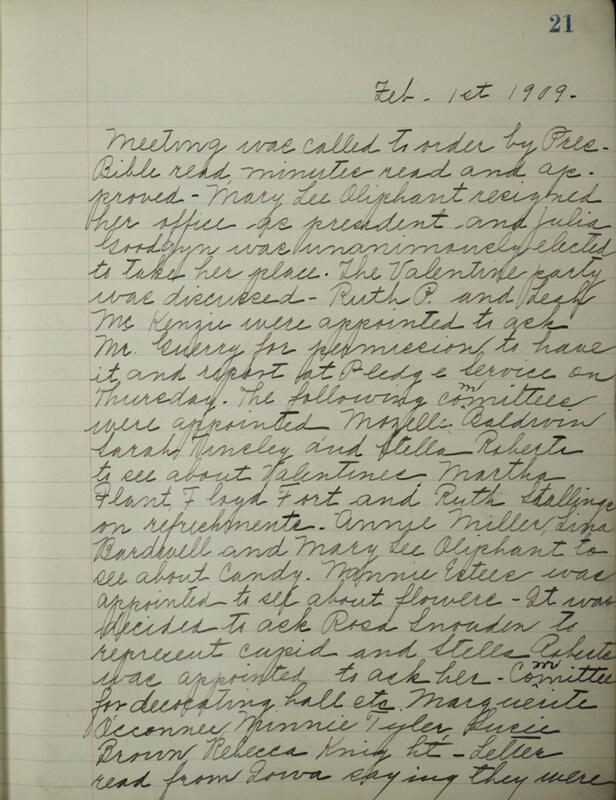 21
Feb. 1st 1909.
Meeting was called to order by Pres-
Bible read, minutes read and ap-
proved - Mary Lee Oliphant resigned
her office as president and Julia
Goodwyn was unanimously elected
to take her place. The Valentine party
was discussed - Ruth P. and Leah
Mc Kenzie were appointed to ask
Mr. Guerry for permission to have
it and report at Pledge service on
Thursday. The following committees
were appointed Mozelle Baldwin
Sarah Tinsley and Stella Roberts
to see about Valentines. Martha
Plant, Floyd Fort and Ruth Stallings
on refreshments. Annie Miller, Lina
Bardwell and Mary Lee Oliphant to
see about Candy. Minnie Estees was
appointed to see about flowers - It was
decided to ask Rosa Snowden to
represent cupid and Stella Roberts
was appointed to ask her - Committee
for decorating hall etc Marguerite
Occonnee Minnie Tyler, Susie
Brown Rebecca Knight - Letter
read from Iowa saying they were